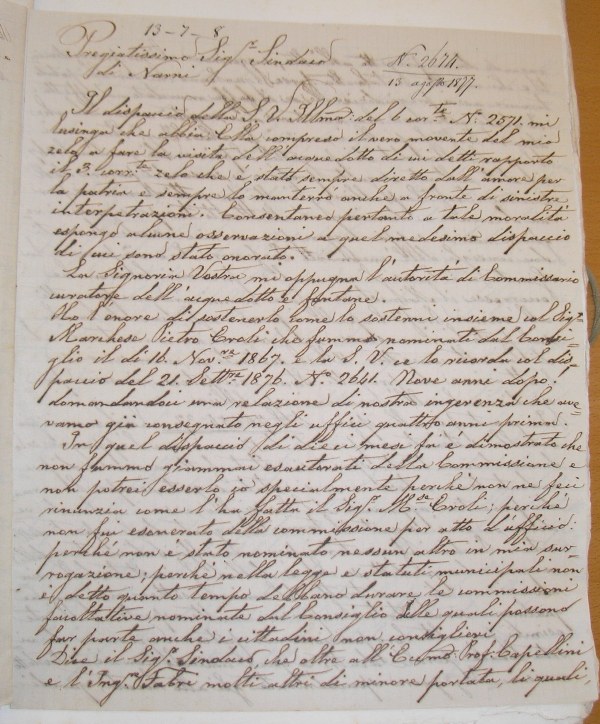 13-7-8
Pregiatissimo Sig.r Sindaco
di Narni
N.° 2674.
13 agosto 1877.
Il dispaccio della S. V. Illma del 6 corr.te N.° 2571. mi
lusinga che abbia Ella compreso il vero movente del mio
zelo a fare la visita dell'acquedotto di cui detti rapporto
il 3. corr.te zelo che è stato sempre diretto dall'amore per
la patria e sempre lo manterrò anche a fronte di sinistre
interpetrazioni. Consentaneo pertanto a tale moralità
espongo alcune osservazioni a quel medesimo dispaccio
di cui sono stato onorato.
La Signoria Vostra mi oppugna l'autorità di Commissario
curatore dell'acquedotto e fontane.
Ho l'onore di sostenerlo come lo sostenni insieme col Sig.r
Marchese Pietro Eroli che fummo nominati dal Consi=
glio il dì 16. Nov.re 1867. e la S. V. ce lo ricorda col dis=
paccio del 21. Sett.re 1876. N.° 2641. Nove anni dopo,
domandandoci una relazione di nostra ingerenza che ave=
vamo già consegnato negli uffici quattro anni prima.
In quel dispaccio di dieci mesi fa è dimostrato che
non fummo giammai esautorati della Commissione e
non potrei esserlo io specialmente perché non ne feci
rinunzia come l'ha fatta il Sig.r M.se Eroli; perché
non fui esonerato della commissione per atto d'ufficio:
perché non è stato nominato nessun altro in mia sur=
rogazione; perché nella legge e statuti municipali non
è detto quanto tempo debbano durare le commissioni
facoltative nominate dal Consiglio delle quali possono
far parte anche i cittadini non consiglieri.
Dice il Sig.r Sindaco, che oltre all' Prof. Capellini
e l'Ing.re Fabri molti altri di minore portata, li quali,